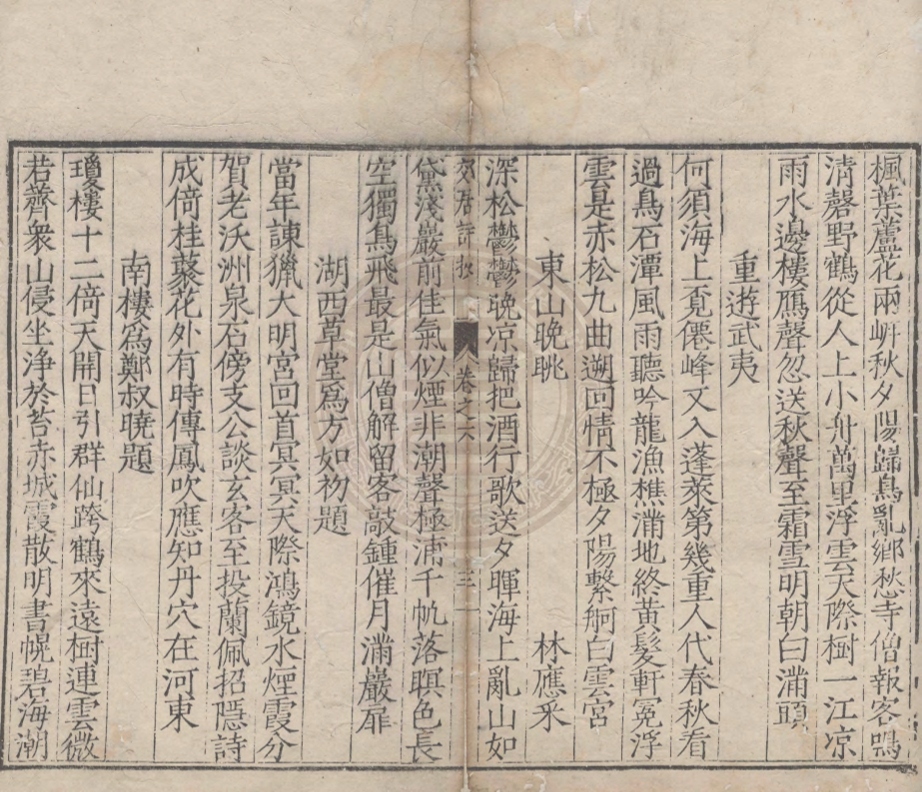 楓葉蘆花兩岍秋夕陽歸鳥亂鄉愁寺僧報客鳴
清磬野鶴從人上小舟萬里浮雲天際樹一江凉
雨水邊樓鴈聲忽送秋聲至霜雪明朝白滿頭
重遊武夷
何須海上覓僊峰又入蓬萊第幾重人代春秋看
過鳥石潭風雨聽吟龍漁樵滿地終黃髮軒冕浮
雲是赤松九曲遡回情不極夕陽繫舸白雲宮
東山晚眺 林應采
深松鬱鬱晚凉歸把酒行歌送夕暉海上亂山如
卷之六 三
黛淺巖前佳氣似煙非潮聲極浦千帆落暝色長
空獨鳥飛最是山僧解留客敲鍾催月滿巖扉
湖西草堂爲方如礿題
當年諫獵大明宮回首冥冥天際鴻鏡水煙霞分
賀老沃洲泉石傍支公談玄客至投蘭佩招隱詩
成倚桂藂花外有時傳鳳吹應知丹穴在河東
南樓爲鄭叔曉題
瓊樓十二倍天開日引群仙跨鶴來遠樹連雲微
若薺衆山侵坐净於苔赤城霞散明書幌碧海潮